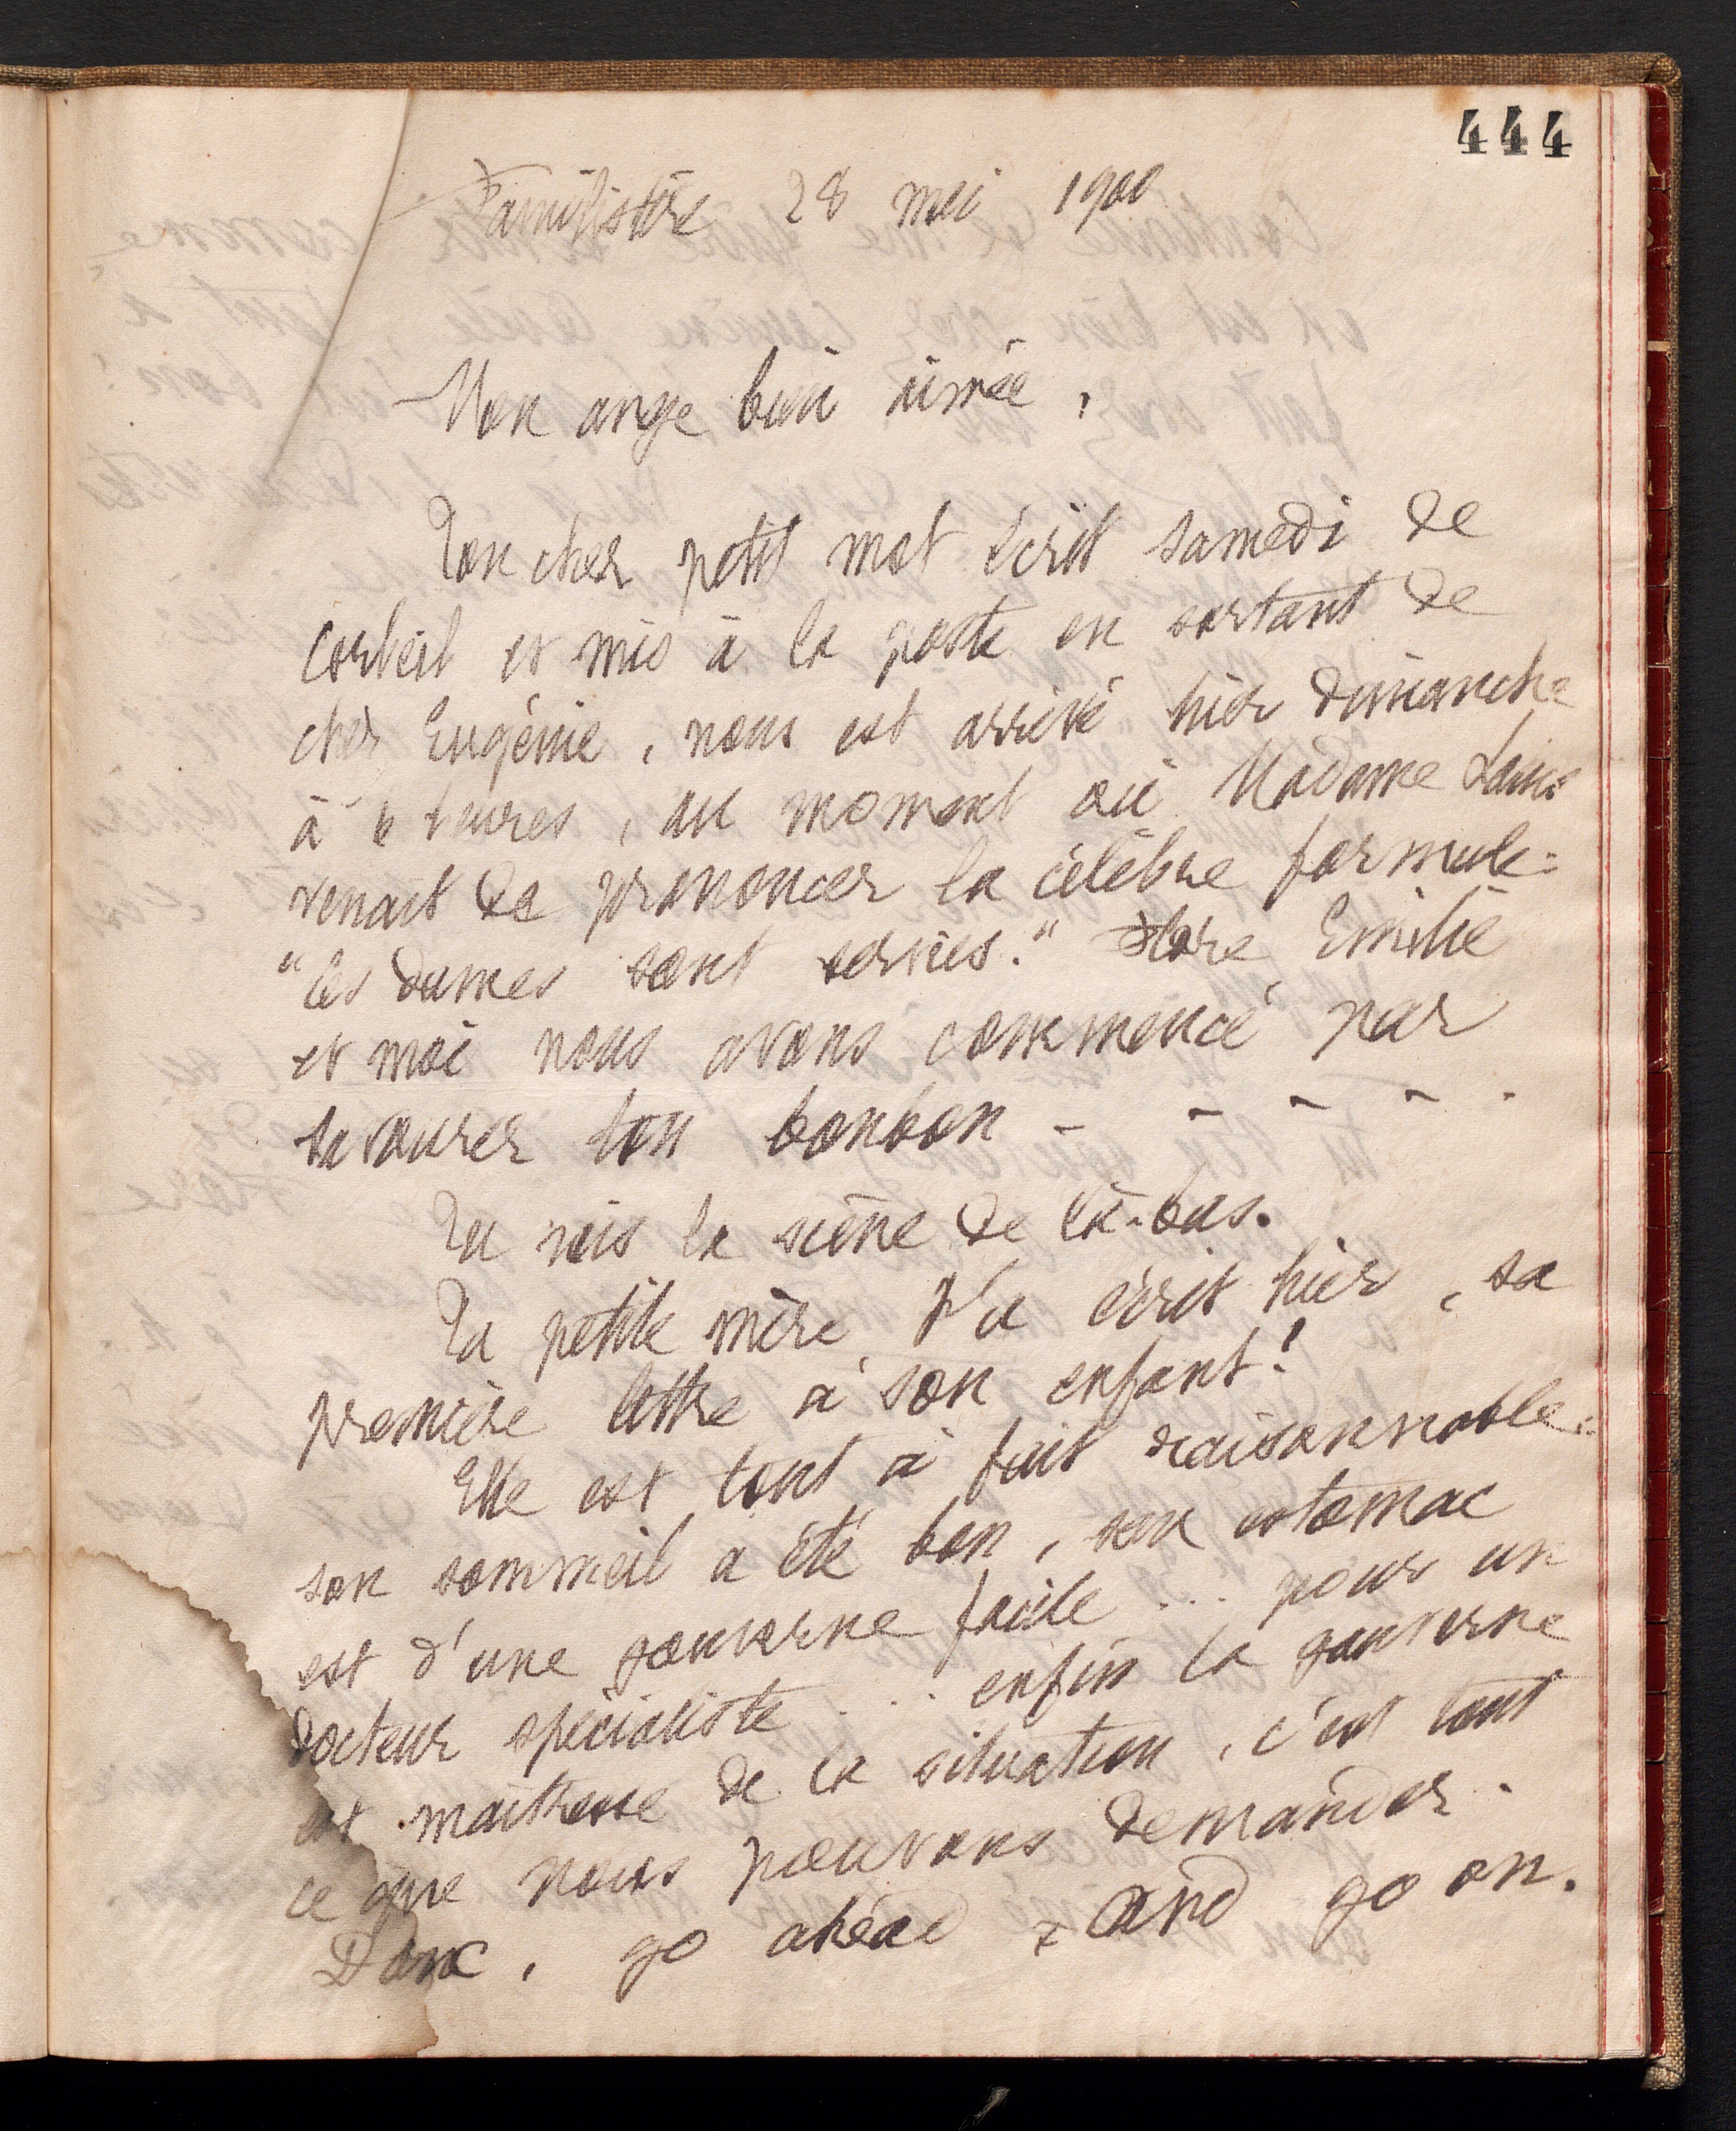 444
Familistère 28 mai 1900
Mon ange bien aimée,
Ton cher petit mot écrit samedi de
Corbeil et mis à la poste en sortant de
chez Eugénie, nous est arrivé hier dimanche
à 6 heures, au moment où Madame Louis
venait de prononcer la célèbre formule :
"Ces dames sont servies." Flore, Emilie
et moi nous avons commencé par
savourer ton bonbon - - - - .
Tu vois la scène de là-bas.
Ta petite mère t'a écrit hier, sa
première lettre à son enfant !
Elle est tout à fait raisonnable.
son sommeil a été bon, son estomac
est d'une gouverne facile ... pour un
docteur spécialiste ... enfin la gouverne
est maîtresse de la situation, c'est tout
ce que nous pouvons demander.
Donc, go ahead and go on.